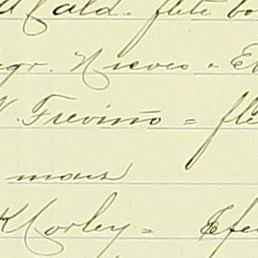 Cald. flete bo
gr. Nieves = E
N. Trevino = fle
mars
K Corley = Efe